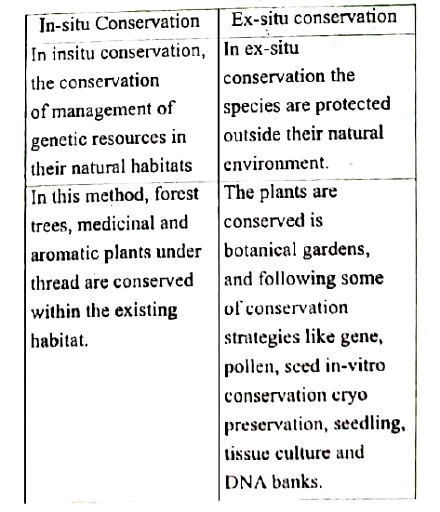 In-situ Conservation
Ex-situ conservation
In insitu conservation,
the conservation
of management of
genetic resources in
their natural habitats
In ex-situ
conservation the
species are protected
outside their natural
environment.
In this method, forest
trees, medicinal and
aromatic plants under
thread are conserved
within the existing
habitat.
The plants are
conserved is
botanical gardens,
and following some
of conservation
strategies like gene,
pollen, seed in-vitro
conservation cryo
preservation, seedling,
tissue culture and
DNA banks.